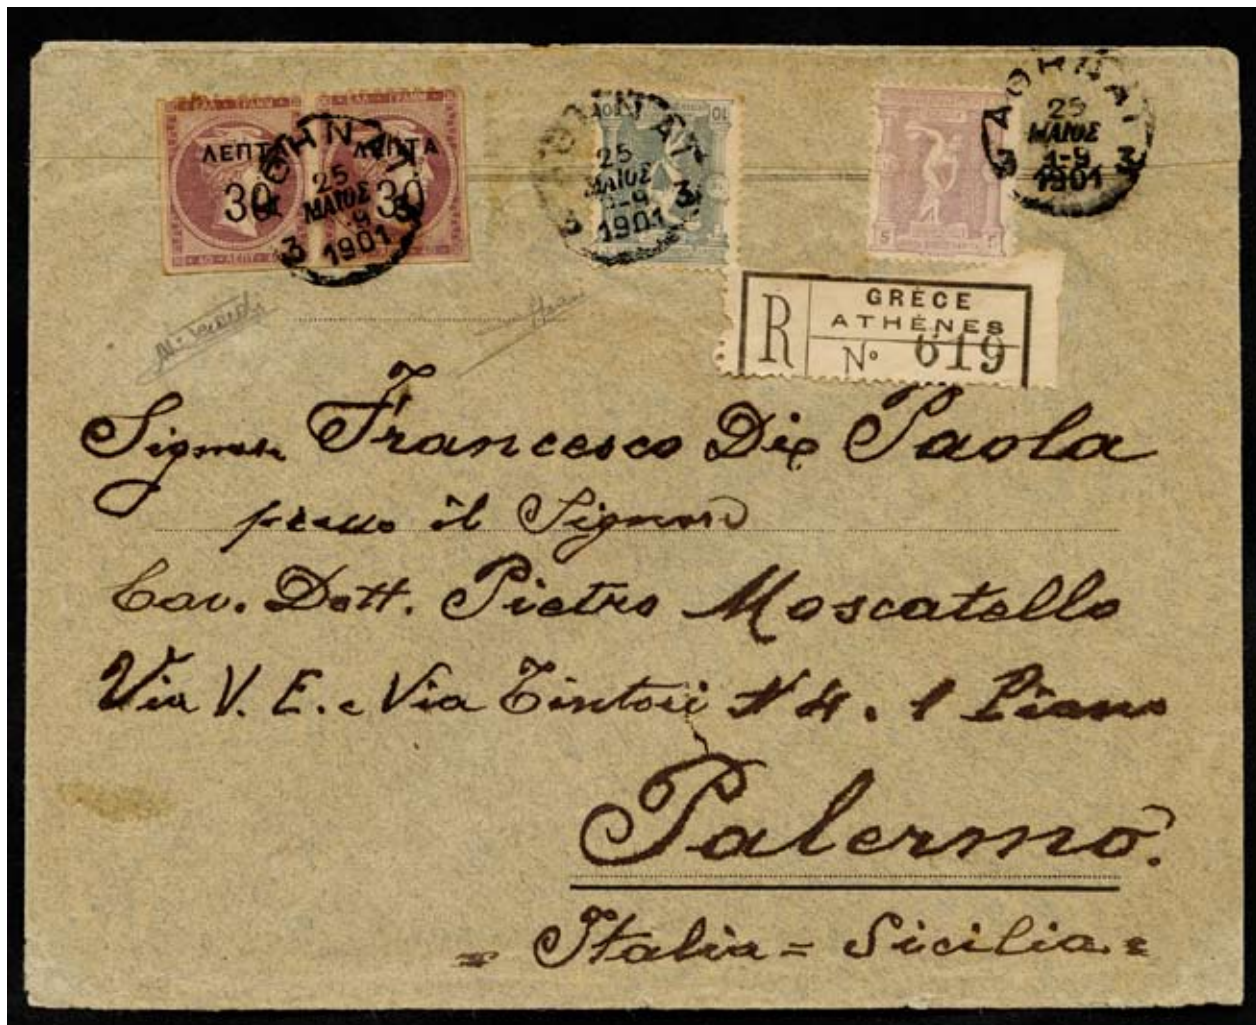 ΕΛΛ · ΓΡΑΜΜ
ΕΛΛ · ΓΡΑΜΜ
ΛΕΠΤΑ
30
ΛΕΠΤΑ
30
40 · ΛΕΠΤ
ΑΘΗΝΑΙ
25
ΜΑΙΟΣ
1901
3 3
10
ΑΘΗΝΑΙ
25
ΜΑΙΟΣ
1901
3 3
5
ΑΘΗΝΑΙ
25
ΜΑΙΟΣ
1901
3 3
R
GRÈCE
ATHÈNES
No 619
Signore Francesco Di Paola
presso il Signore
Cav. Dott. Pietro Moscatello
Via V. E. e Via Tintori N 4. 1 Piano
Palermo.
= Italia = Sicilia =